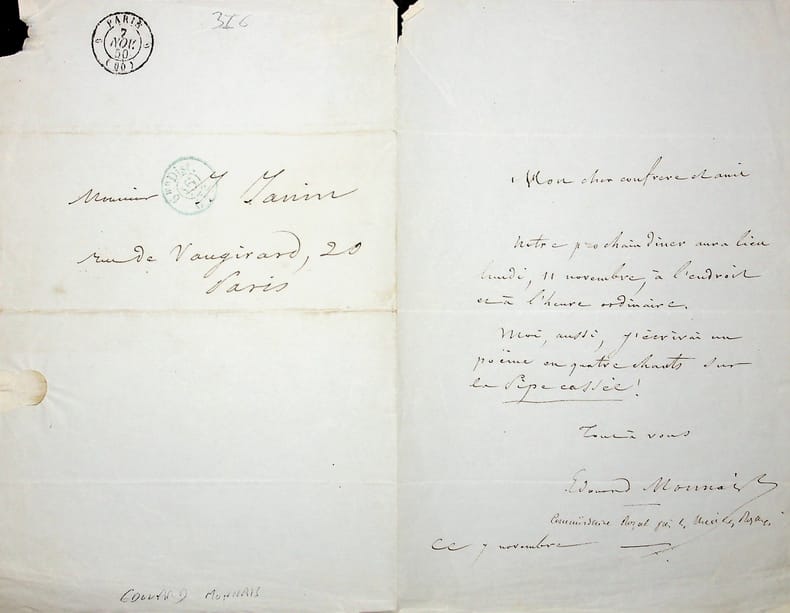 PARIS
7
NOV.
50
(60)
Monsieur J Janin
rue de Vaugirard, 20
Paris
EDOUARD MONNAIS
Mon cher confrere et ami
Notre prochain diner aura lieu
lundi, 11 novembre, à l'endroit
et à l'heure ordinaire.
Moi, aussi, j'écrirai un
poëme en quatre chants sur
la Pipe cassée!
Tout à vous
Edouard Monnais
Commissaire Royal
Ce 7 novembre